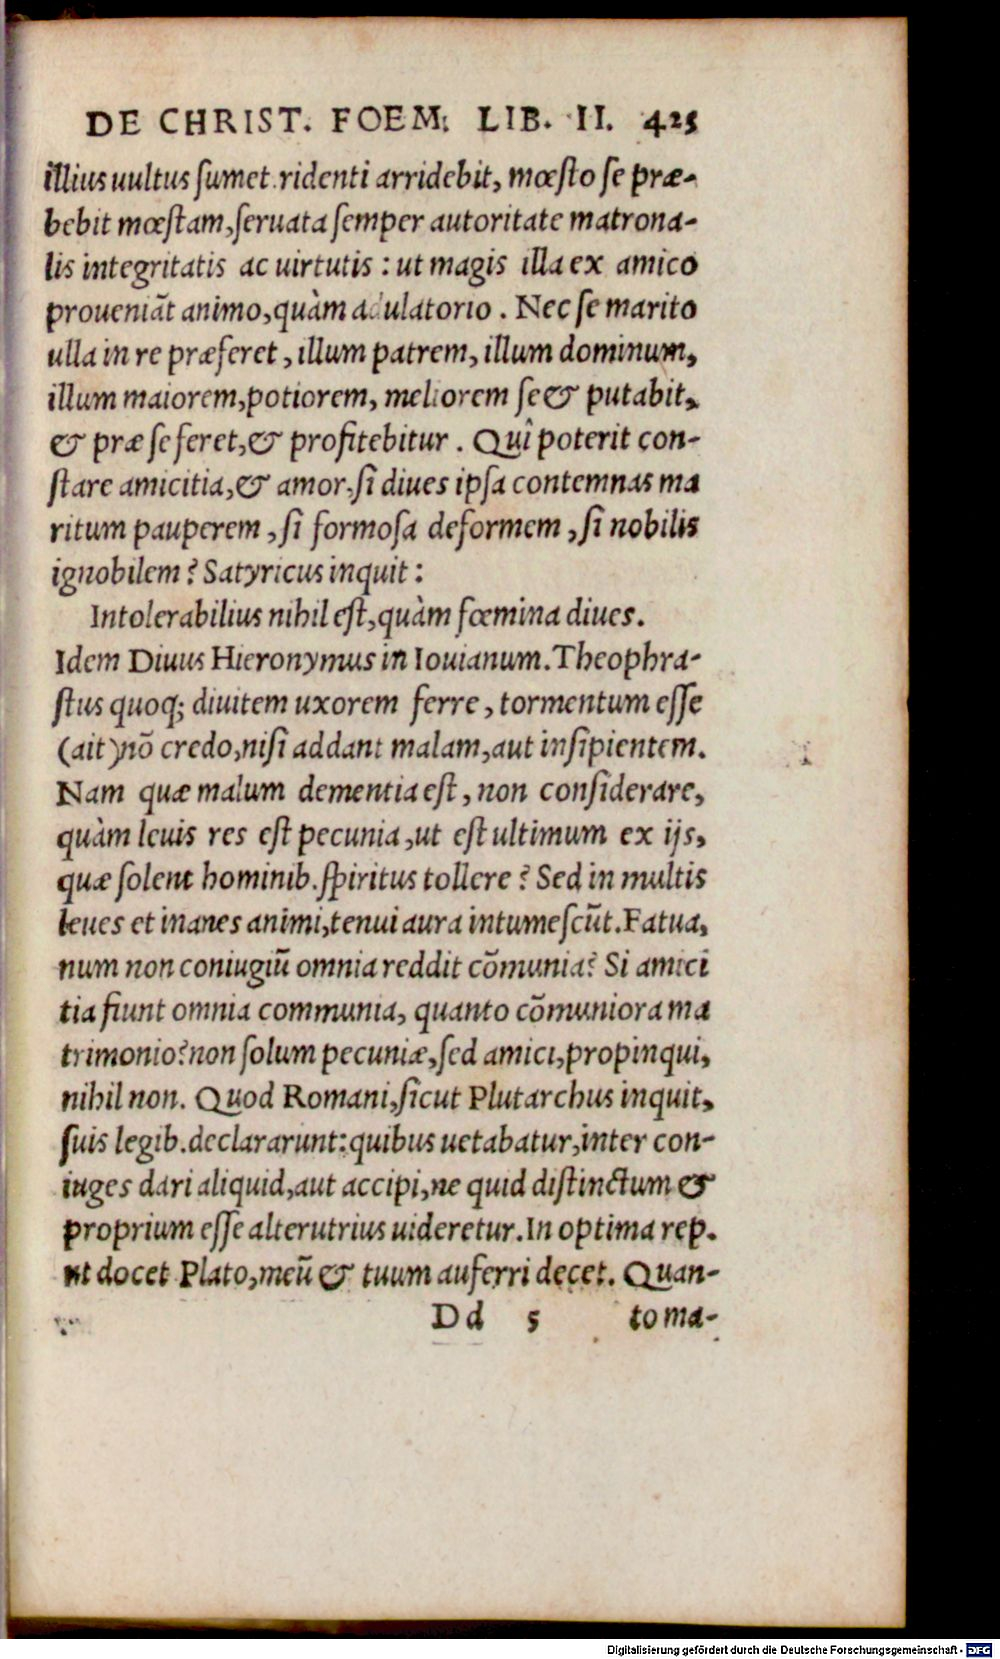 DE CHRIST. FOEM. LIB. II. 425
illius uultus ſumet. ridenti arridebit, mœſto ſe præ-
bebit mœſtam, ſeruata ſemper autoritate matrona-
lis integritatis ac uirtutis : ut magis illa ex amico
proueniãt animo, quàm adulatorio . Nec ſe marito
ulla in re præferet, illum patrem, illum dominum,
illum maiorem, potiorem, meliorem ſe & putabit,
& præ ſe feret, & profitebitur . Quî poterit con-
ſtare amicitia, & amor, ſi diues ipſa contemnas ma
ritum pauperem, ſi formoſa deformem, ſi nobilis
ignobilem? Satyricus inquit :
Intolerabilius nihil eſt, quàm fœmina diues.
Idem Diuus Hieronymus in Iouianum. Theophra-
ſtus quoq; diuitem uxorem ferre, tormentum eſſe
(ait) nõ credo, niſi addant malam, aut inſipientem.
Nam quæ malum dementia eſt, non conſiderare,
quàm leuis res eſt pecunia, ut eſt ultimum ex ijs,
quæ ſolent hominib. ſpiritus tollere? Sed in multis
leues et inanes animi, tenui aura intumeſcũt. Fatua,
num non coniugiũ omnia reddit cõmunia? Si amici
tia fiunt omnia communia, quanto cõmuniora ma
trimonio? non ſolum pecuniæ, ſed amici, propinqui,
nihil non. Quod Romani, ſicut Plutarchus inquit,
ſuis legib. declararunt: quibus uetabatur, inter con-
iuges dari aliquid, aut accipi, ne quid diſtinctum &
proprium eſſe alterutrius uideretur. In optima rep.
ut docet Plato, meũ & tuum auferri decet. Quan-
Dd 5 to ma-
Digitalisierung gefördert durch die Deutsche Forschungsgemeinschaft - DFG